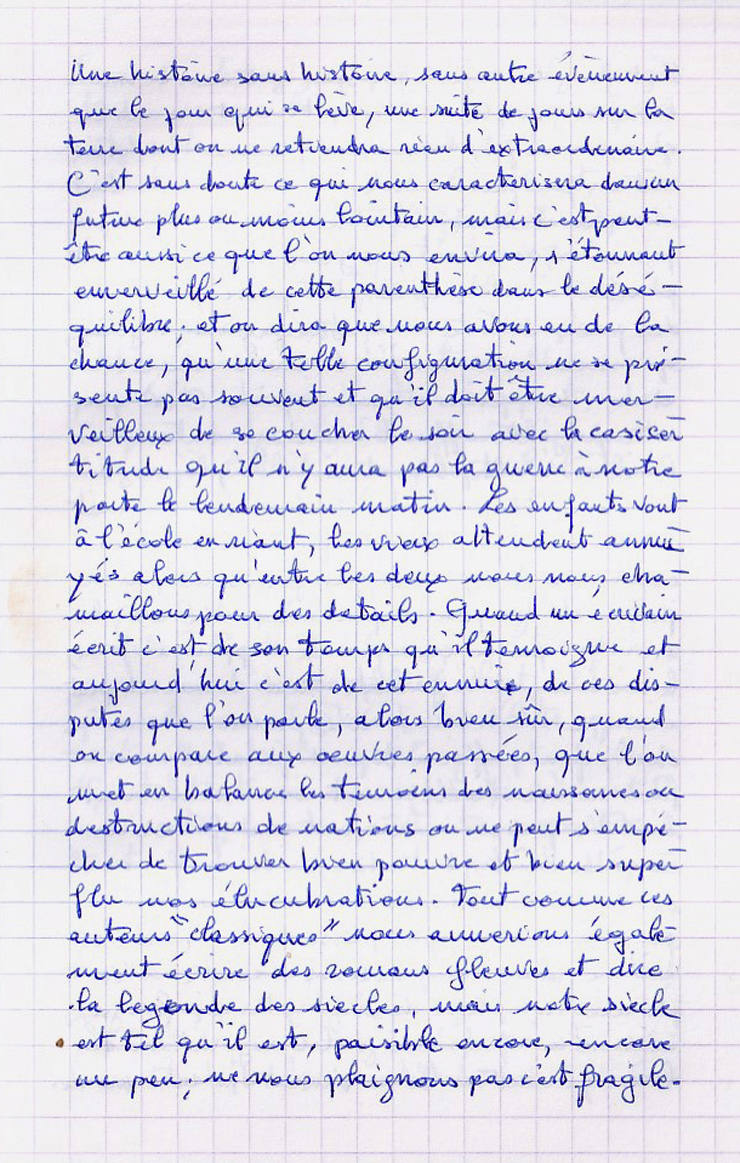 Une histoire sans histoire, sans autre évènement
que le jour qui se lève, une suite de jours sur la
terre dont on ne retiendra rien d'extraordinaire.
C'est sans doute ce qui nous caractérisera dans un
futur plus ou moins lointain, mais c'est peut-
être aussi ce que l'on nous enviera, s'étonnant
émerveillé de cette parenthèse dans le désé-
quilibre; et on dira que nous avons eu de la
chance, qu'une telle configuration ne se pré-
sente pas souvent et qu'il doit être mer-
veilleux de se coucher le soir avec la
titude qu'il n'y aura pas la guerre à notre
porte le lendemain matin. Les enfants vont
à l'école en riant, les vieux attendent ennu
yés alors qu'entre les deux nous nous cha-
maillons pour des details. Quand un écrivain
écrit c'est de son temps qu'il temoigne et
aujourd'hui c'est de cet ennuie, de ces dis-
putes que l'on parle, alors bien sûr, quand
on compare aux oeuvres passées, que l'on
met en balance les temoins des naissances ou
destructions de nations on ne peut s'empê-
cher de trouver bien pauvre et bien super
flu nos élucubrations. Tout comme ces
auteurs "classiques" nous aimerions égale
ment écrire des romans fleuves et dire
la legende des siecles, mais notre siècle
est tel qu'il est, paisible encore, encore
un peu; ne nous plaignons pas c'est fragile.